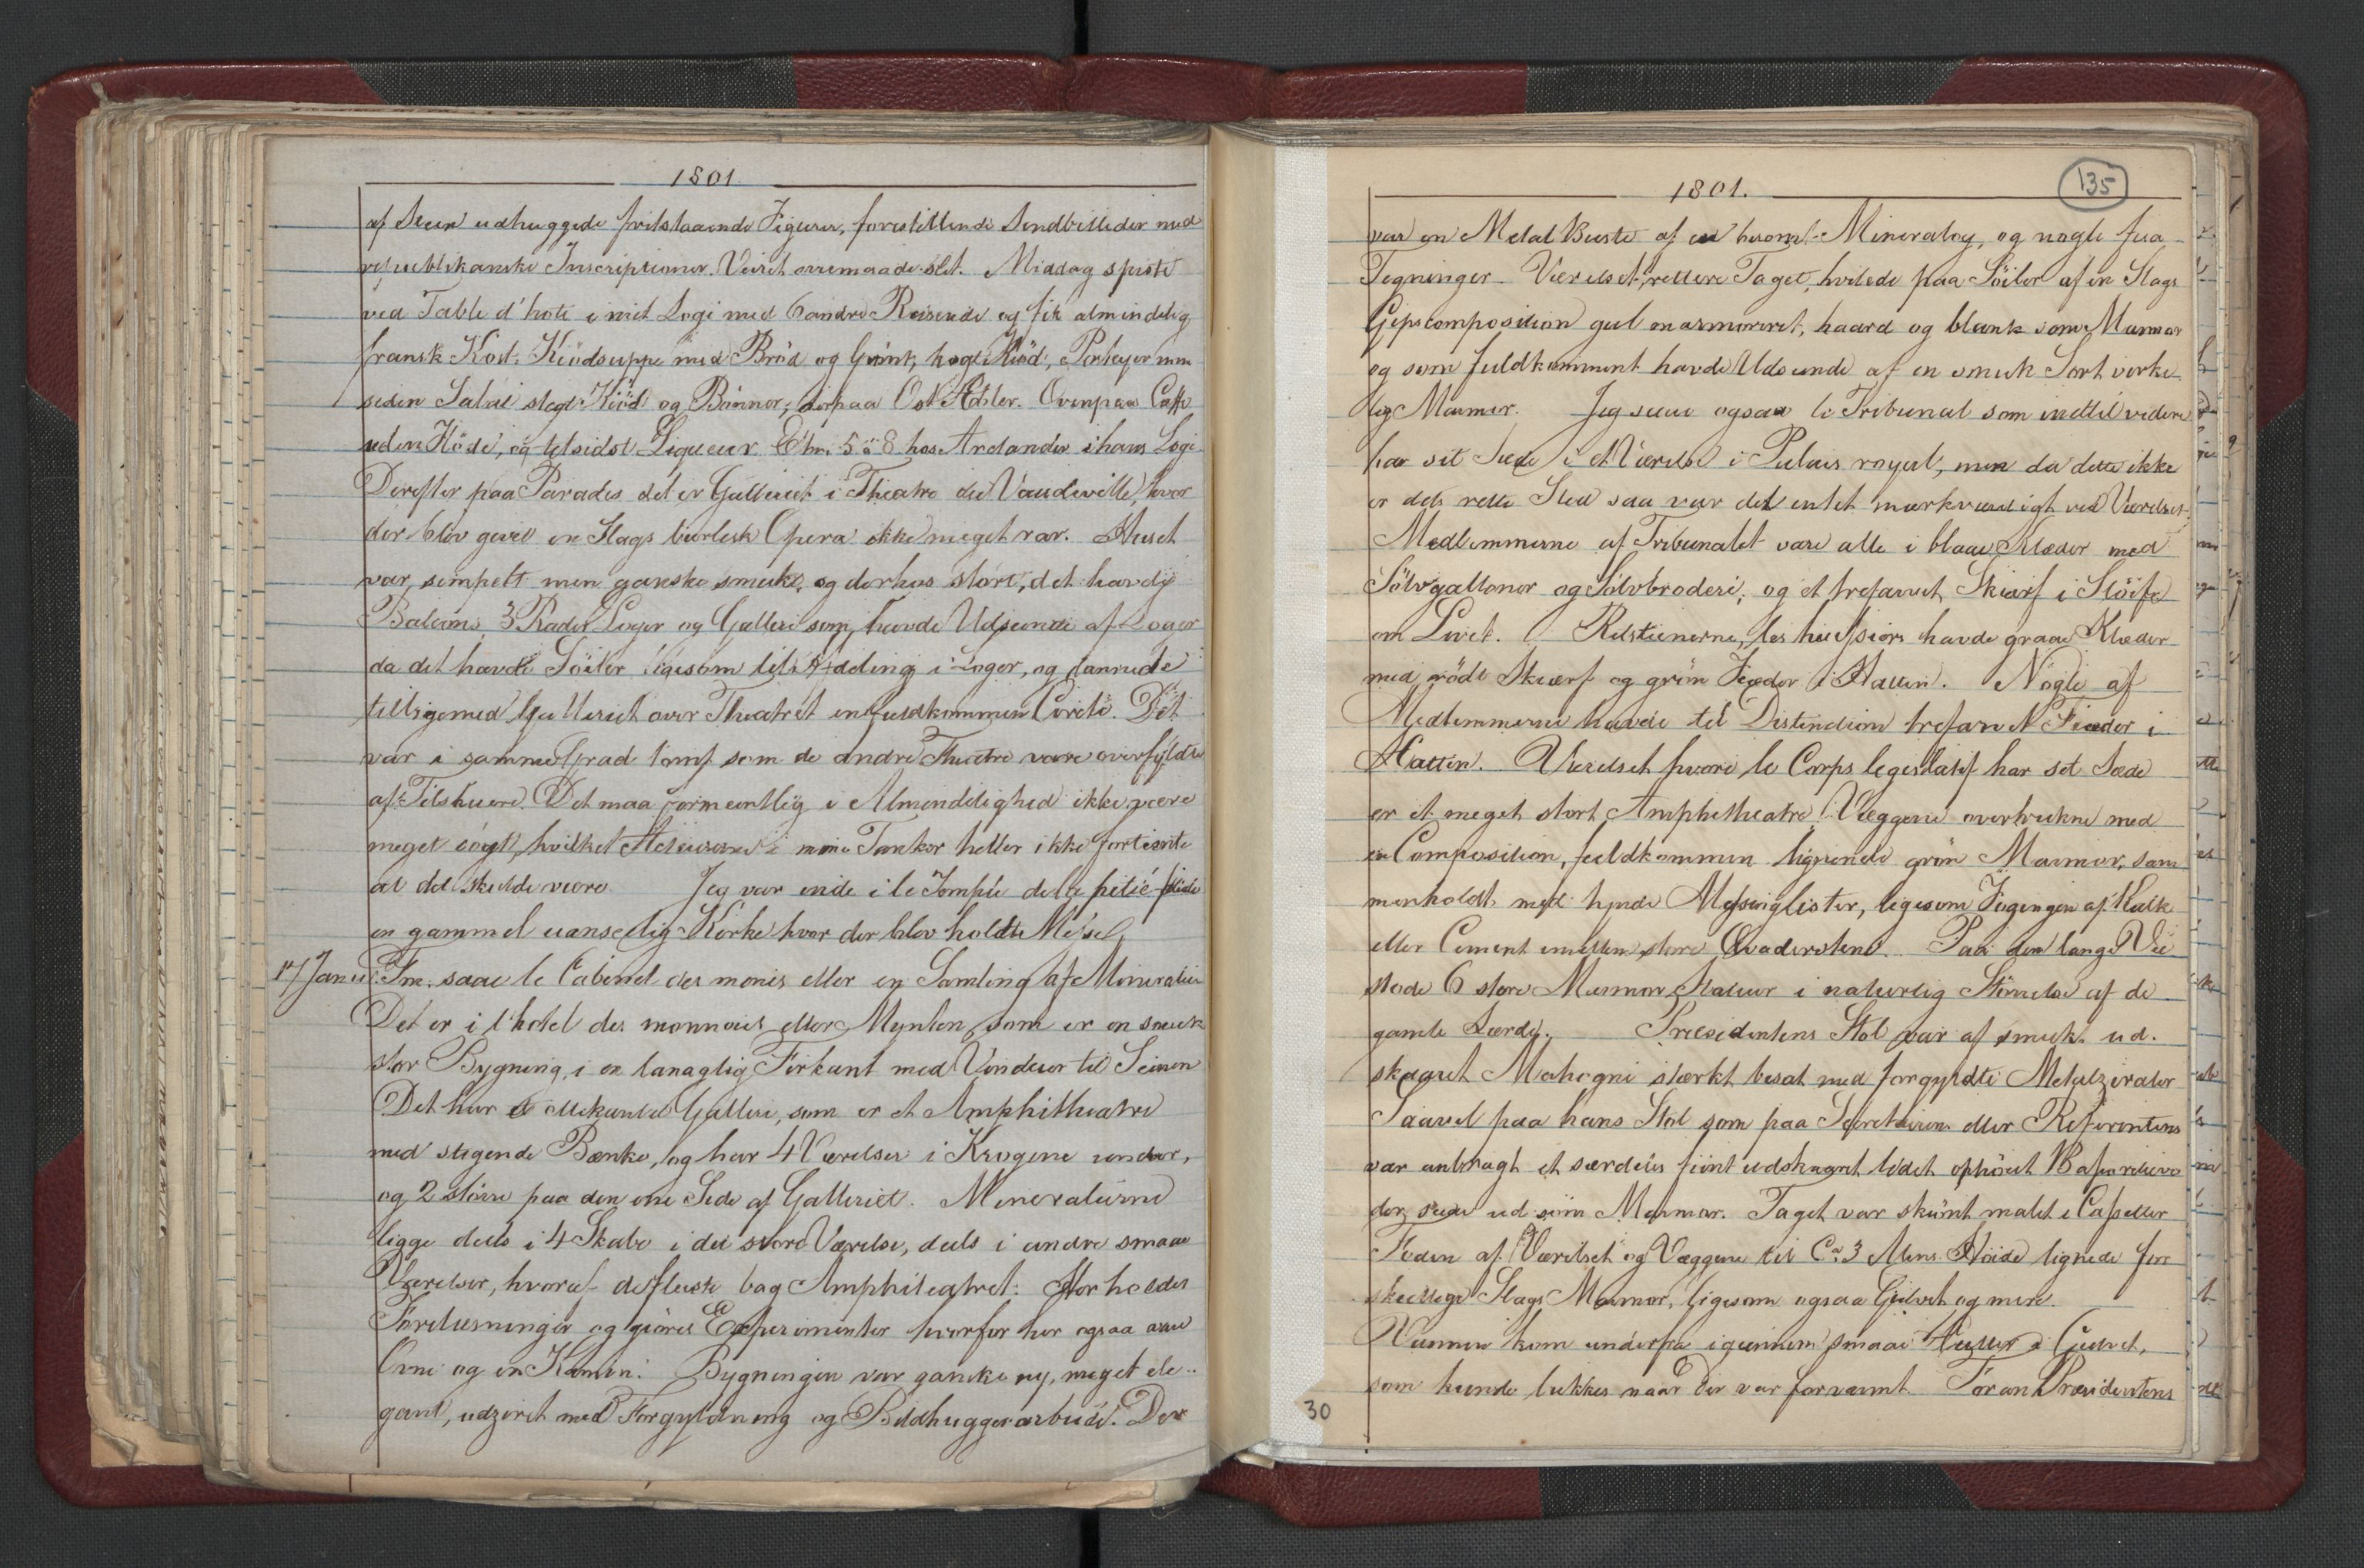 1801.
af Steen udhuggede fritstaaende Figurer, forestillende Sindbilleder med
republikanske Inscriptioner. Veiret overmaade slet. Middag spiste
ved Table d'hote i mit Logi med 6 andre Reisende og fik almindelig
fransk Kost: Kiödsuppe med Brød og Grönt, kogt Kiöd, Posteyer
siden Salat stegt Kiöd og Bönner; derpaa Ost Æbler. Ovenpaa Caffe
uden Flöde, og tilsidst Liqueur. Efm. 5 à 8 hos Arelander i hans Logi
Derefter paa Parades det er Galleriet i Theatre du Vaudeville, hvor
der blev givet en Slags burlesk Opera ikke meget rar. Huset
var simpelt men ganske smukt, og derhos stort, det havde
Balcons, 3 Rader Loger og Galleri som havde Udseende af Loger
da det havde Söiler ligesom til Afdeling i Loger, og dannede
tilligemed Galleriet over Theatret en fuldkommen Circle. Det
var i samme Grad tomt som de andre Theatre vare overfyldte
af Tilskuere. Det maa formeentlig i Almindelighed ikke være
meget sögt, hvilket Acteurerne i mine Tanker heller ikke fortiente
at det skulde være Jeg var inde i le Temple de la pitié
en gammel uanseelig Kirke hvor der blev holdt Messe
17 Januar. Fm. saae le Cabinet des mines eller en Samling af Mineralier
Det er i l'hotel des monnoies eller Mynten, som er en smuk
stor Bygning, i en lanaglig Firkant med Vinduer til Seinen
Det har et ottekantet Galleri, som er et Amphitheatre
med stigende Bænke, og har 4 Værelser i Krogene under,
og 2 större paa den ene Side af Galleriet. Mineralierne
ligge deels i 4 Skabe i det store Værelse, deels i andre smaae
Værelser, hvoraf de fleeste bag Amphiteatret. Her holdes
Forelæsninger og giöres Experimenter hvorfor her ogsaa
Ovne og en Kamin. Bygningen var ganske ny, meget ele-
gant, udziret med Forgyldning og Billedhuggerarbeide. Der
1801.
135
var en Metal Buste af en beromt Mineralog, og nogle faa
Tegninger. Værelset, rettere Taget, hvilede paa Söiler af en Slags
Gipscomposition gul marmoreret, haard og blank som Marmor
og som fuldkomment havde Udseende af en smuk Sort virke
lig Marmor. Jeg saae ogsaa le Tribunal som indtil videre
har sit Sæde i et Værelse i Palais royal, men da dette ikke
er dets rette Sted saa var det intet mærkværdigt ved Værelset
Medlemmerne af Tribunalet vare alle i blaae Klæder med
Sölvgalloner og Sölvbroderi, og et trefarvet Skiærf i Slöife
om Livet. Retstienerne, les huissiers havde graae Klæder
med rödt Skiærf og grön Fiæder i Hatten. Nogle af
Medlemmerne havde til Distinction trefarvet Fiæder i
Hatten. Værelset hvori le Corps legislatif har sit Sæde
er et meget stort Amphitheatre. Væggene overtrukne med
en Composition, fuldkommen lignende grön Marmor, sam
menholdt med tynde Messinglister, ligesom Fugingen af Kalk
eller Cement imellem store Qvadersteene. Paa den lange Væg
stode 6 store Marmor Statuer i naturlig Störrelse af de
gamle Lærde. Præsidentens Stol var af smukt ud-
skaaret Mahogni stærkt besat med forgyldte Metalzirater
Saavel paa hans Stol som paa Secretairens eller Referentens
var anbragt et særdeles fiint udskaaret lidet ophöiet Basrelieve
der saae ud som Marmor. Taget var skiönt malet i Capeller
Foden af Værelset og Væggene til Ca. 3 Alens Höide lignede for
skiellige Slags Marmor, ligesom ogsaa Gulvet og mere.
Varmen kom underfra igiennem smaae Huller i Gulvet,
som kunde lukkes naar der var for varmt. Foran Præsidentens
30